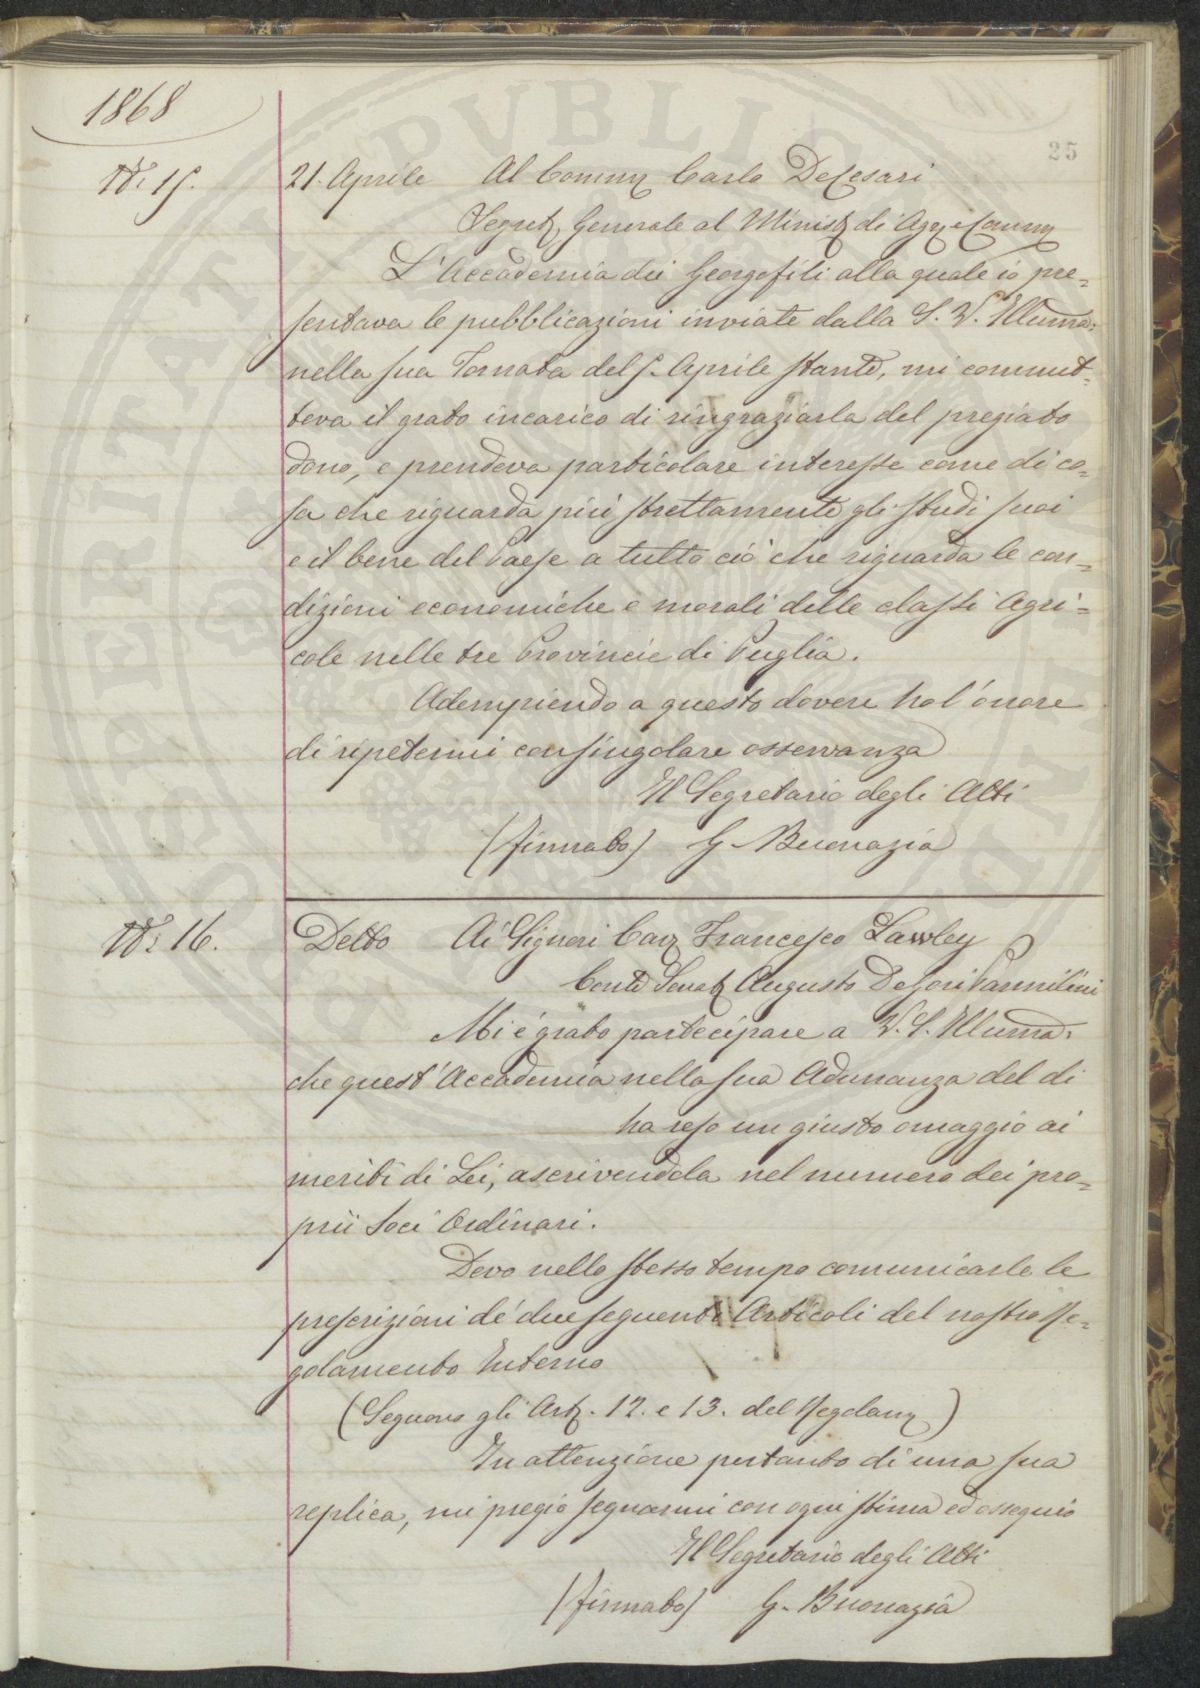 1868
25
N: 15.
21. Aprile Al Comm Carlo DeCesari
Segret Generale al Minist di Agr e Comm
L'Accademia dei Georgofili alla quale io pre=
sentava le pubblicazioni inviate dalla S. V. Illuma:
nella sua Tornata del 5. Aprile stante, mi commet=
teva il grato incarico di ringraziarla del pregiato
dono, e prendeva particolare interesse come di co=
sa che riguarda più strettamente gli studi suoi
e il bene del Paese a tutto ciò che riguarda le con=
dizioni economiche e morali delle classi Agri=
cole nelle tre Provincie di Puglia.
Adempiendo a questo dovere ho l'onore
di ripetermi con singolare osservanza
Il Segretario degli Atti
(firmato) G. Buonazia
N: 16.
Detto Ai Signori Cav Francesco Lawley
Conte Senat Augusto DeGori Pannilini
Mi è grato partecipare a V. S. Illuma:
che quest'Accademia nella sua Adunanza del di
ha reso un giusto omaggio ai
meriti di Lei, ascrivendola nel numero dei pro=
prii Soci Ordinari.
Devo nello stesso tempo comunicarle le
prescrizioni de' due seguenti Articoli del nostro Re=
golamento Interno
(Seguono gli Art. 12. e 13. del Regolam)
In attenzione pertanto di una sua
replica, mi pregio segnarmi con ogni stima ed ossequio
Il Segretario degli Atti
(firmato) G. Buonazia
PVBLICAE
PROSPERITATI